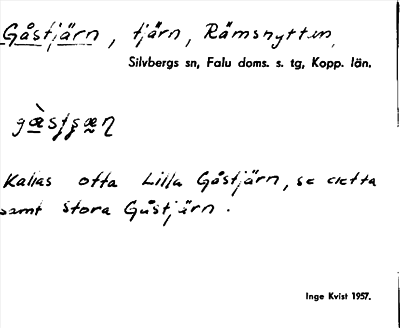 Gåstjärn, tjärn, Rämsnytten
Silvbergs sn, Falu doms. s. tg, Kopp. län.
Kallas ofta Lilla Gåstjärn, se detta
samt Stora Gåstjärn.
Inge Kvist 1957.